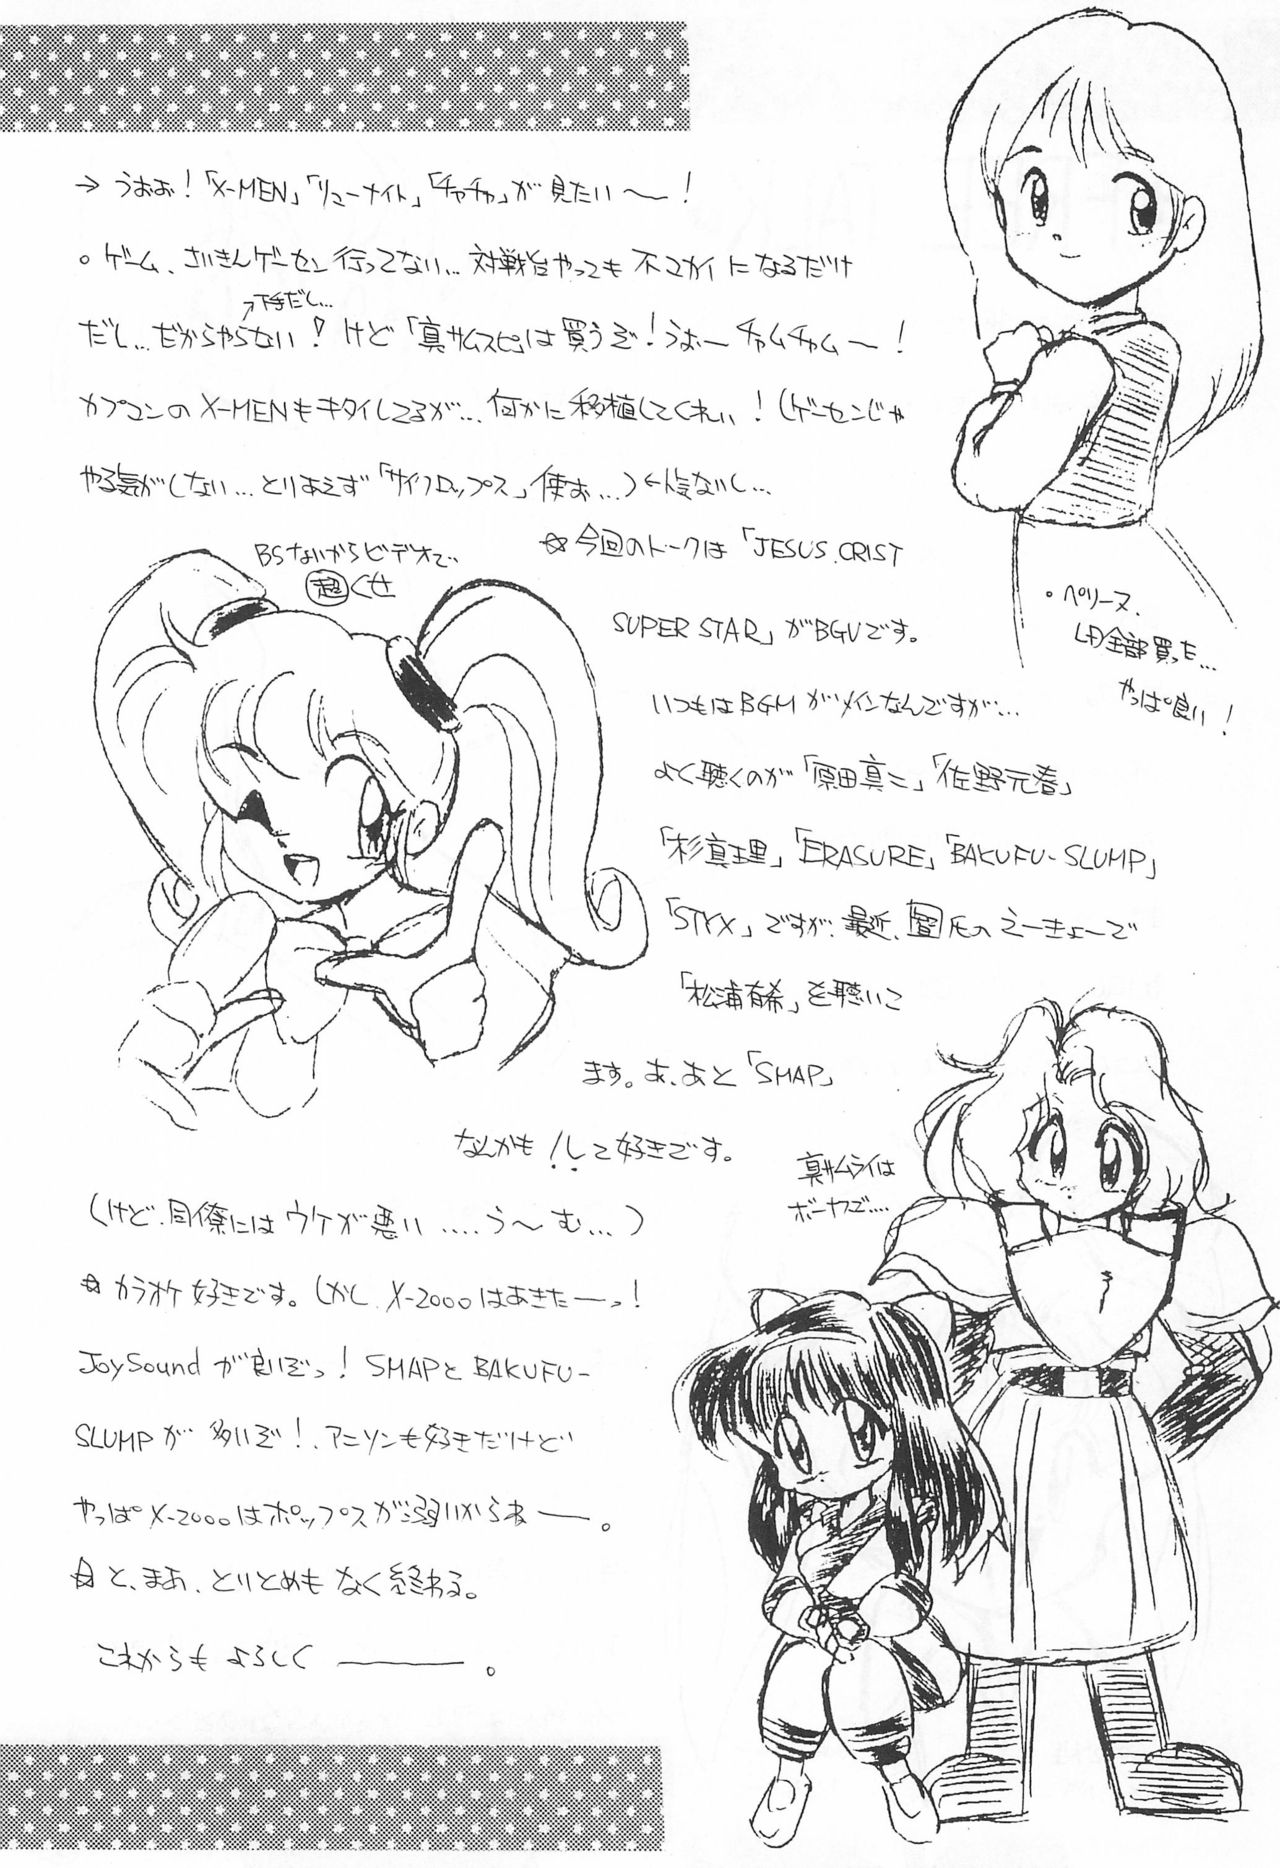 → うおお!「X-MEN」「リューナイト」「チャチャ」が見たい〜!
○ ゲーム、さいきんゲーセン行ってない…対戦台やっても不マカイになるだけ
→下手だし…
だし…だからやらない! けど「真サムスピ」は買うぞ!うおーチャムチャム〜!
カプコンのX-MENもキタイしてるが…何かに移植してくれい!(ゲーセンじゃ
やる気がしない…とりあえず「サイクロップス」使お…)←人気ないし…
BSないからビデオで、
超くせ
☆今回のトークは「JESUS.CRIST
SUPER STAR」がBGVです。
○ ペリーヌ、
LD全部買った…
やっぱ良い!
いつもはBGMがメインなんですが…
よく聴くのが「原田真二」「佐野元春」
「杉真理」「ERASURE」「BAKUFU-SLUMP」
「STYX」ですが、最近、氏のえーきょーで
「松浦有希」を聴いて
ます。あ、あと「SMAP」
なんかも!して好きです。
真サムライは
ボーヤで…
(けど、同僚にはウケが悪い….う〜む…)
☆ カラオケ好きです。しかし、X-2000はあきたーっ!
JoySoundが良いぞっ! SMAPとBAKUFU-
SLUMPが多いぞ!、アニソンも好きだけど
やっぱX-2000はポップスが弱いからねー。
☆ と、まあ、とりとめもなく終わる。
これからもよろしく ―――。